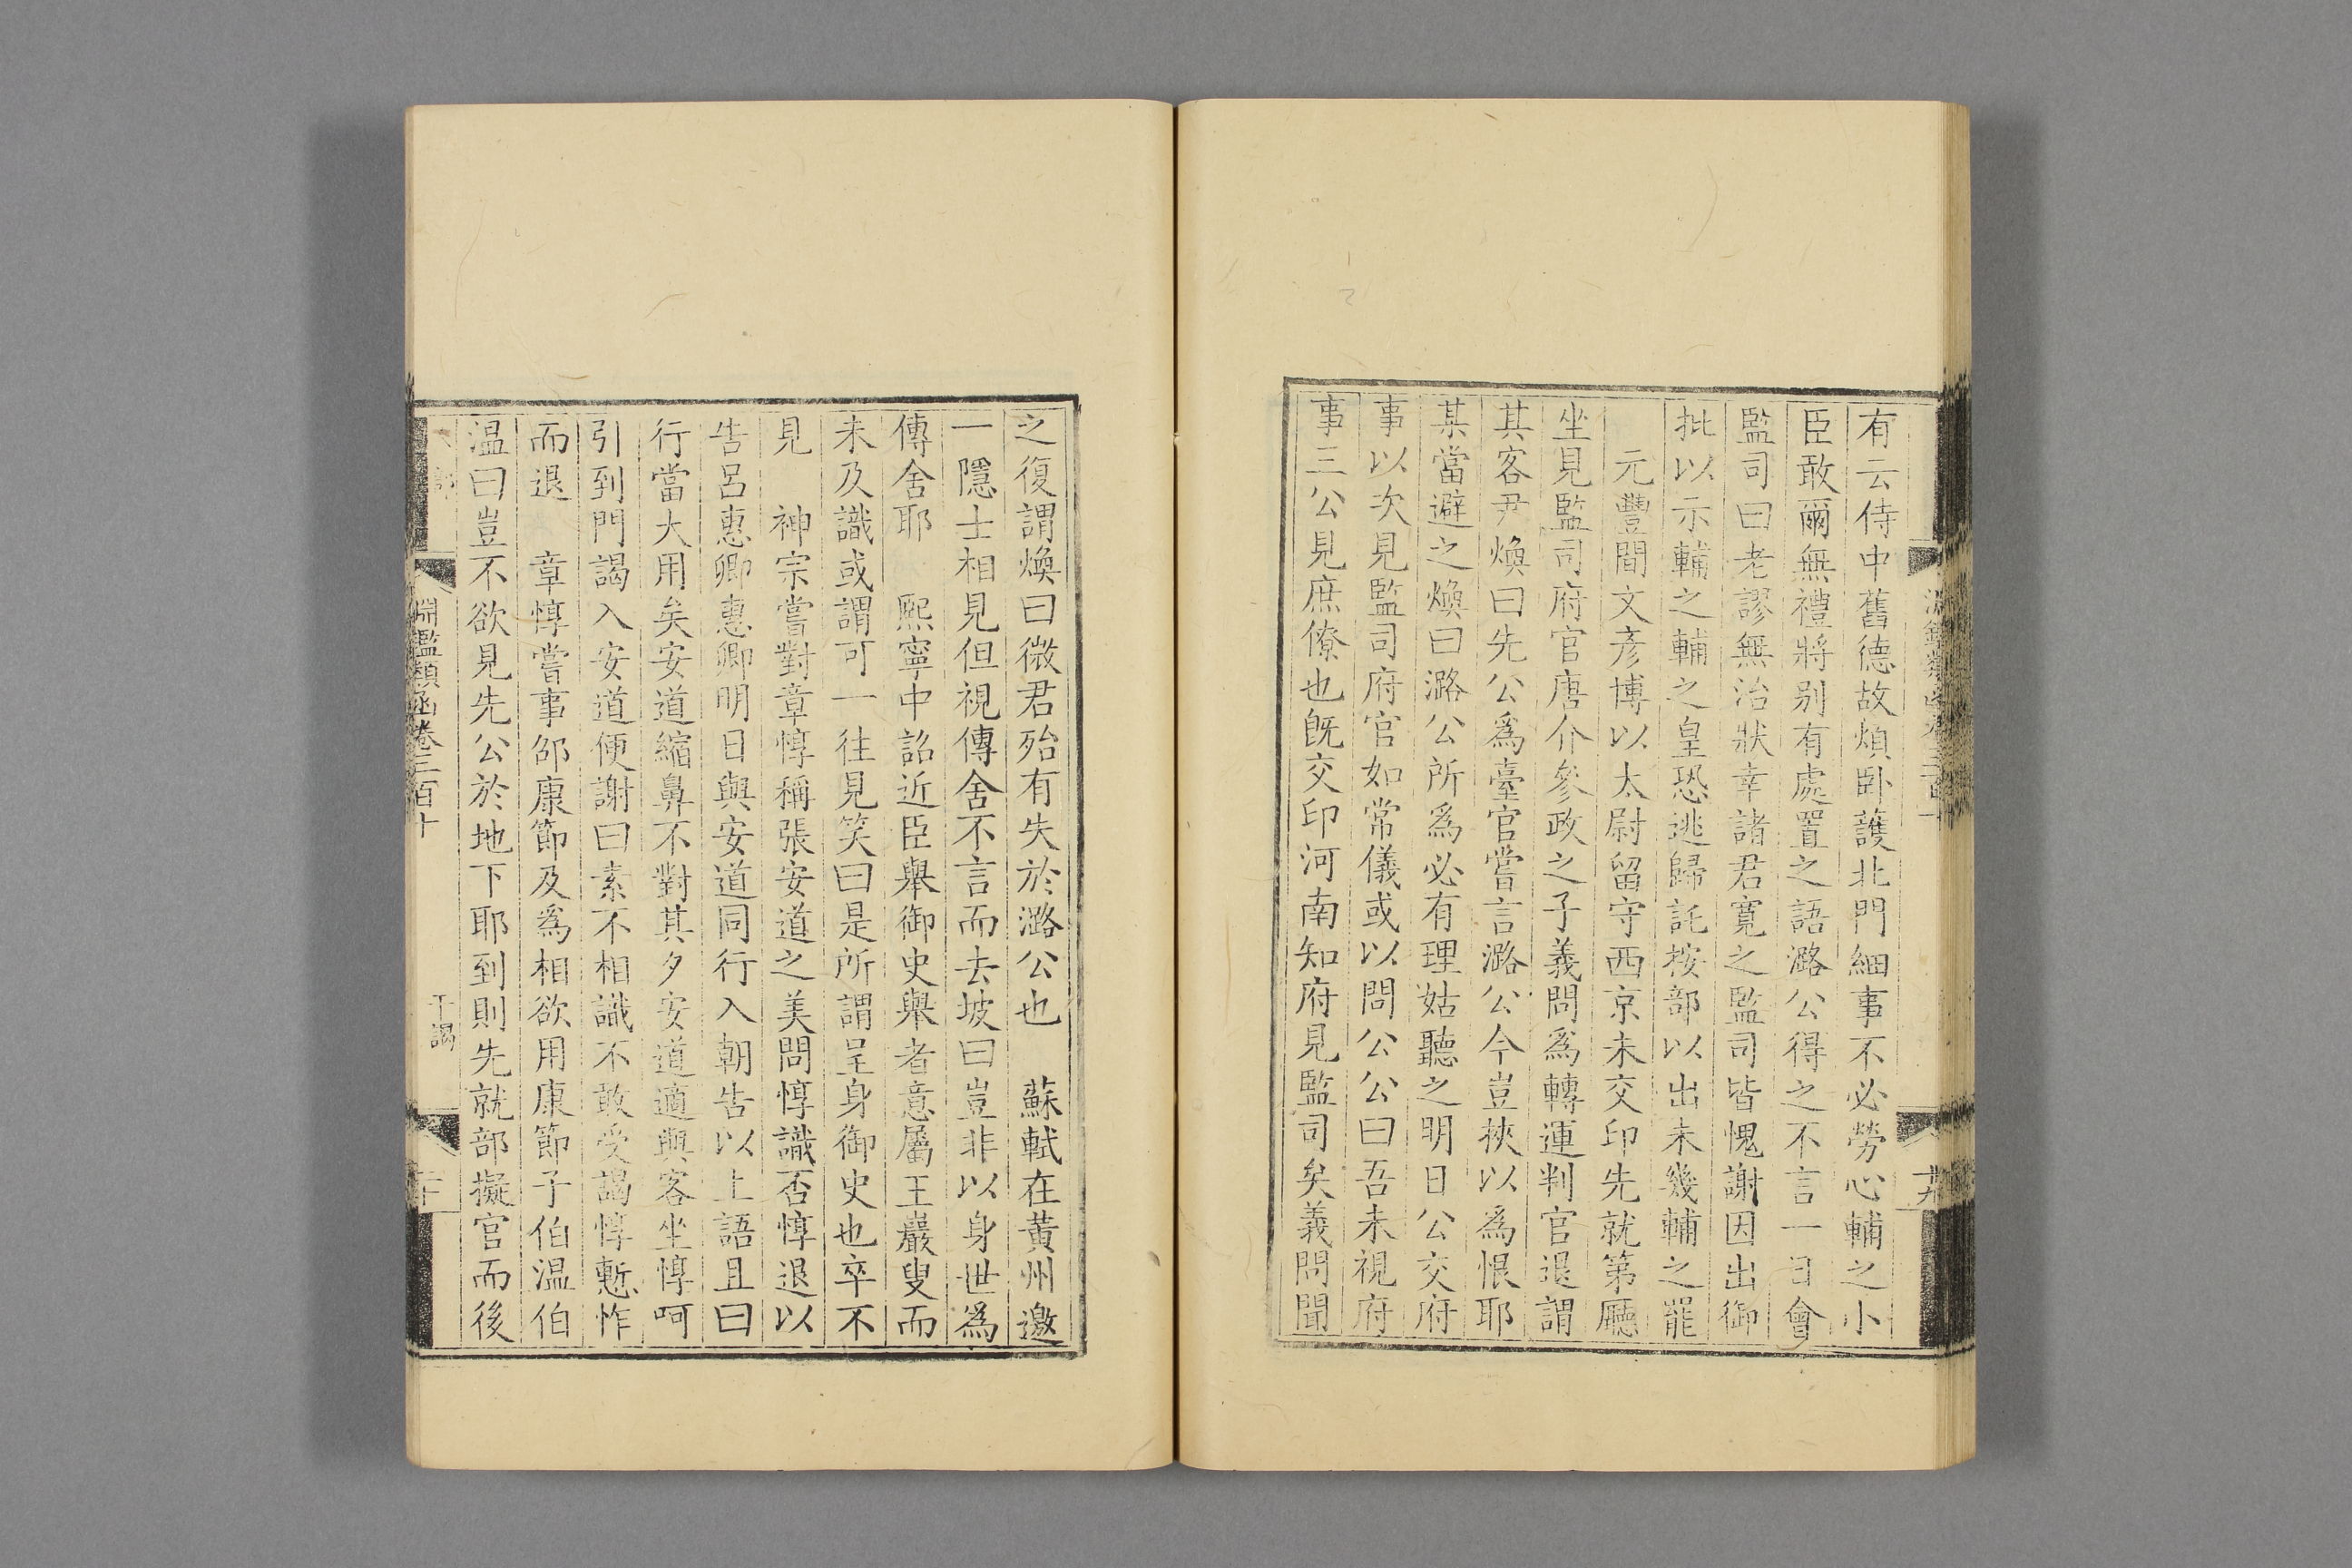 有云侍中舊德故煩卧護北門細事不必勞心輔之小
臣敢爾無禮將别有處置之語潞公得之不言一日會
監司曰老謬無治狀幸諸君寛之監司皆愧謝因出御
批以示輔之輔之皇恐逃歸託按部以出未幾輔之罷
元豐間文彦博以太尉留守西京未交印先就第廳
坐見監司府官唐介參政之子義問爲轉運判官退謂
其客尹煥曰先公爲臺官嘗言潞公今豈挾以爲恨耶
某當避之煥曰潞公所爲必有理姑聽之明日公交府
事以次見監司府官如常儀或以問公公曰吾未視府
事三公見庶僚也旣交印河南知府見監司矣義問聞
之復謂煥曰微君殆有失於潞公也　蘇軾在黃州邀
一隱士相見但視傳舍不言而去坡曰豈非以身世爲
傳舍耶　熙寧中詔近臣舉御史舉者意屬王巖叟而
未及識或謂可一往見笑曰是所謂呈身御史也卒不
見　神宗嘗對章惇稱張安道之美問惇識否惇退以
告呂惠卿惠卿明日與安道同行入朝告以上語且曰
行當大用矣安道縮鼻不對其夕安道適與客坐惇呵
引到門謁入安道便謝曰素不相識不敢受謁惇慙怍
而退　章惇嘗事邵康節及爲相欲用康節子伯温伯
温曰豈不欲見先公於地下耶到則先就部擬官而後
淵鑑類函卷三百十
干謁